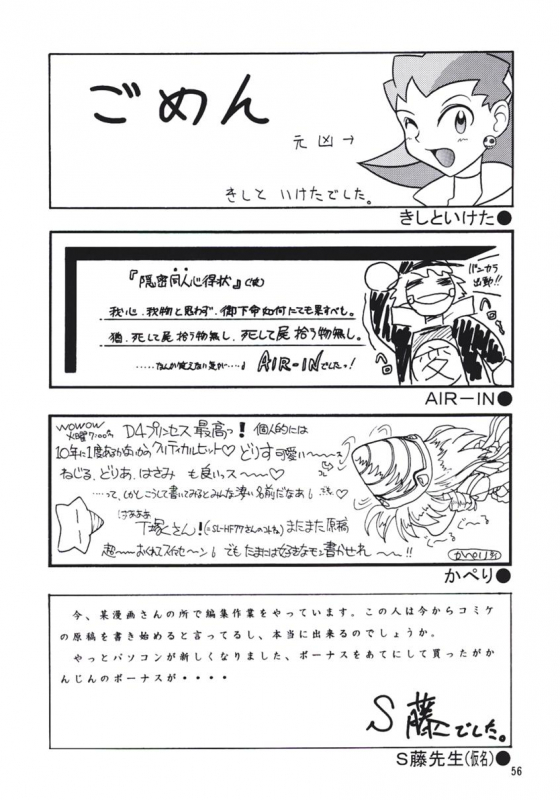 ごめん
元凶→
きしと いけたでした。
きしといけた●
『隠密同人心得状』(嘘)
バンカラ出動!!
我心、我物と思わず、御下命如何にても果すべし。
猶、死して屍拾う物無し、死して屍拾う物無し。
……なんか笑えない気が…
AIR-INでした。!
ヘロ
ヘロ
AIR-IN●
WOWOW
火曜7:00から
D4プリンセス最高っ!個人的には
10年に1度あるかないかのクリティカルヒット♡どりす可愛い〜〜〜
ねじる、どりあ、はさみ も良いっス〜〜〜♡
……って、しかしこうして書いてみるとみんな凄い名前だなあ
はぁぁぁ
T塚さん!
またまた原稿
超〜〜おくれてスイマセ〜ン
でも たまには好きなモン書かせれ〜〜!!
かぺり
かぺり●
今、某漫画さんの所で編集作業をやっています。この人は今からコミケ
の原稿を書き始めると言ってるし、本当に出来るのでしょうか。
やっとパソコンが新しくなりました、ボーナスをあてにして買ったがか
んじんのボーナスが・・・・
S藤でした。
S藤先生(仮名)●
56